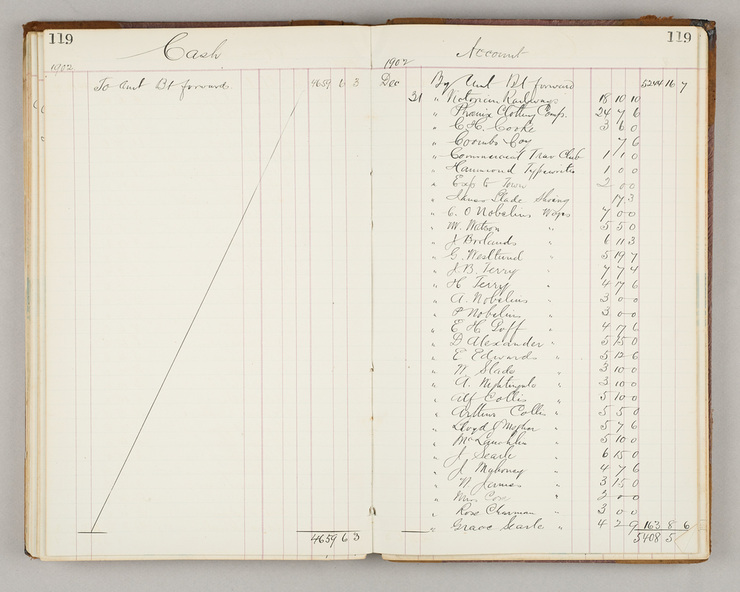 119
Cash
1902
To Amt Bt forward 4659 6 3
4659 6 3
119
Account
1902
Dec By Amt Bt forward 5244 16 7
31 " Victorian Railways 18 10 10
" Phoenix Clothing Comp. 24 7 6
" C H Cooke 3 6 0
" Coombs Coy 7 6
" Commercial Trav Club 1 1 0
" Hammond Typewriter 1 0 0
" Exp to Town 2 0 0
" Slade 17 3
" C. O Nobelius Wages 7 0 0
" W. Watson " 5 5 0
" J Borlands " 6 11 3
" G. Westlund " 5 19 7
" J. B. Terry " 7 7 4
" H Terry " 4 7 6
" A. Nobelius " 3 0 0
" P Nobelius " 3 0 0
" E H Goff " 4 7 6
" D Alexander " 5 15 0
" E Edwards " 5 12 6
" W. Slade " 3 10 0
" A. Nightingale " 3 10 0
" Alf Collis " 5 10 0
" Arthur Collis " 5 5 0
" Lloyd " 5 7 6
" McLaughlin " 5 10 0
" J Searle " 6 15 0
" J Mahoney " 4 7 6
" W James " 3 15 0
" Miss Cox " 2 0 0
" Rose Charman " 3 0 0
" Grace Searle " 4 2 9 163 8 6
5408 5